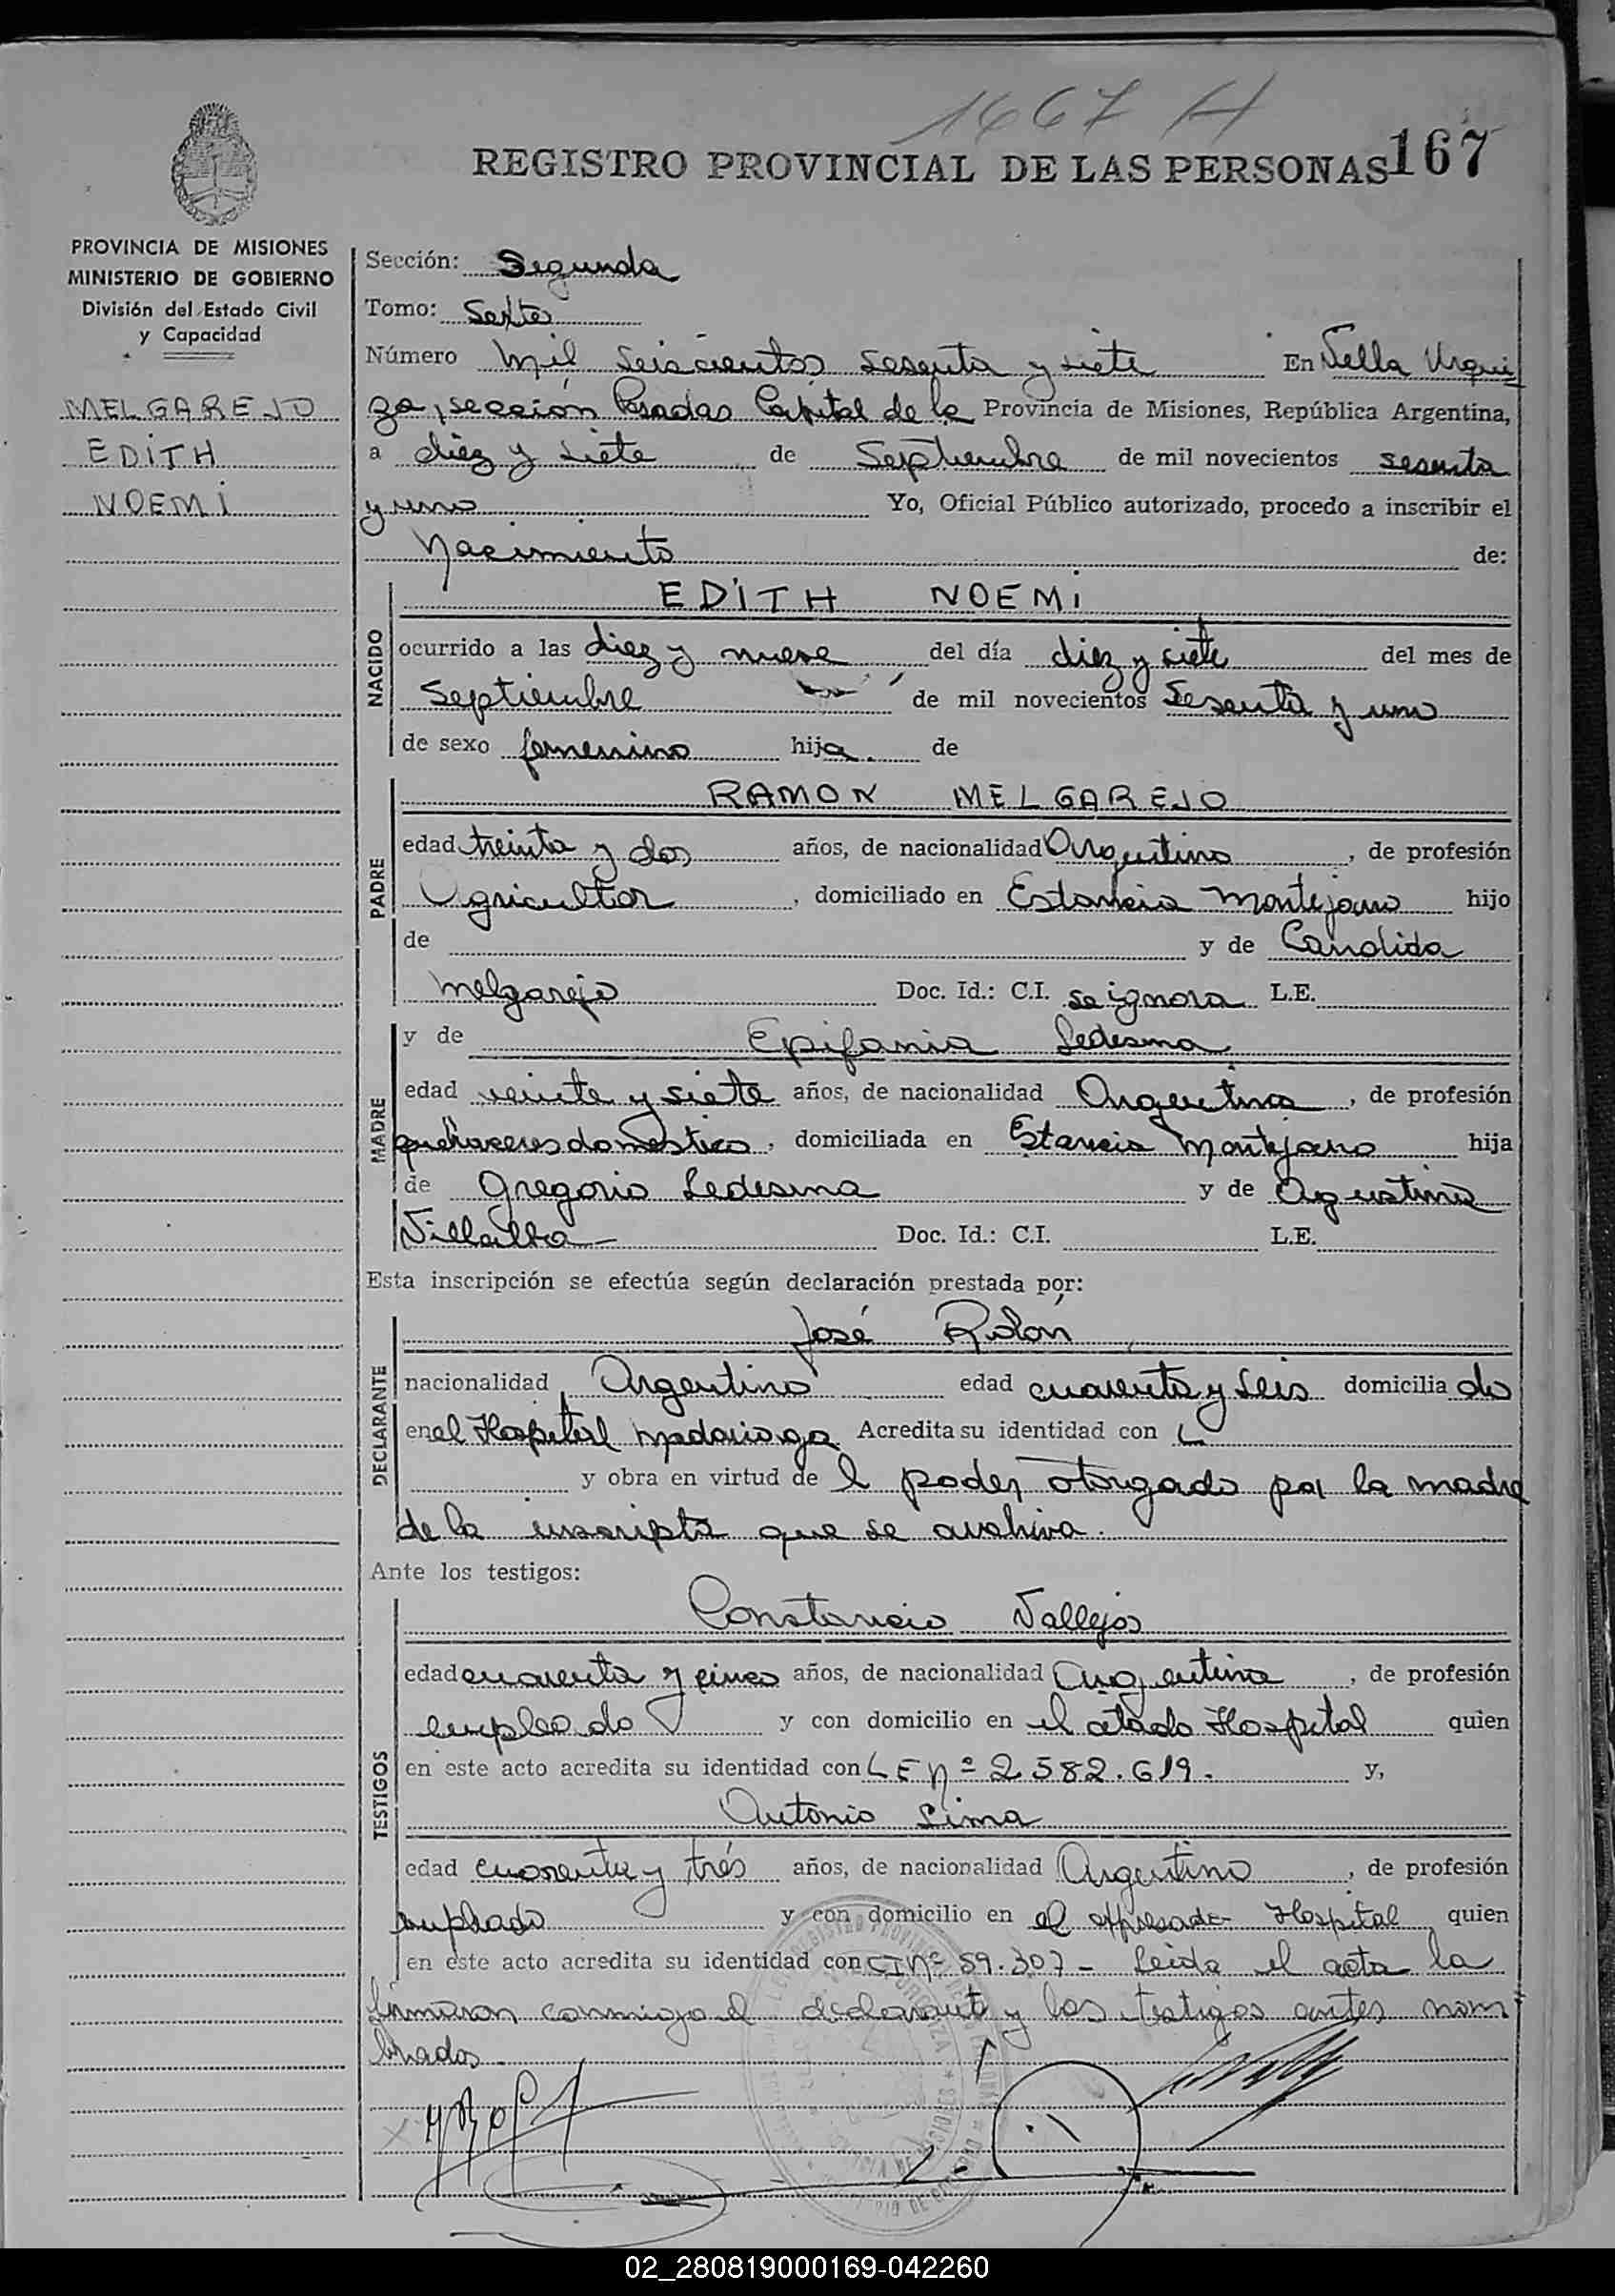 1667 H
REGISTRO PROVINCIAL DE LAS PERSONAS 167
PROVINCIA DE MISIONES
MINISTERIO DE GOBIERNO
División del Estado Civil
y Capacidad
MELGAREJO
EDITH
NOEMI
Sección: Segunda
Tomo: Sexto
Número Mil Seiscientos sesenta y siete En Villa Urqui
za, sección Posadas Capital de la Provincia de Misiones, República Argentina,
a diez y siete de Septiembre de mil novecientos sesenta
y uno Yo, Oficial Público autorizado, procedo a inscribir el
Nacimiento de:
NACIDO
EDITH NOEMI
ocurrido a las diez y nueve del día diez y siete del mes de
Septiembre de mil novecientos Sesenta y uno
de sexo femenino hija. de
PADRE
RAMON MELGAREJO
edad treinta y dos años, de nacionalidad Argentino, de profesión
Agricultor, domiciliado en Estancia Montejano hijo
de y de Candida
Melgarejo Doc. Id.: C.I. se ignora L.E.
MADRE
y de Epifania Ledesma
edad veinte y siete años, de nacionalidad Argentina, de profesión
quehaceres domestico, domiciliada en Estancia Montejano hija
de Gregorio Ledesma y de Agustina
Villalba - Doc. Id.: C.I. L.E.
Esta inscripción se efectúa según declaración prestada por:
DECLARANTE
José Rolón
nacionalidad Argentino edad cuarenta y seis domicilia do
en el Hospital Madariaga Acredita su identidad con
y obra en virtud de l poder otorgado por la madre
de la inscripta que se archiva.
Ante los testigos:
TESTIGOS
Constancio Vallejos
edad cuarenta y cinco años, de nacionalidad Argentina, de profesión
empleado y con domicilio en el citado Hospital quien
en este acto acredita su identidad con L E Nº 2.582.619. y,
Antonio Lima
edad cuarenta y trés años, de nacionalidad Argentino, de profesión
empleado y con domicilio en el expresado Hospital quien
en este acto acredita su identidad con CI Nº 59.307 - Leida el acta la
firmaron conmigo el declarante y los testigos antes nom
brados.
02_280819000169-042260